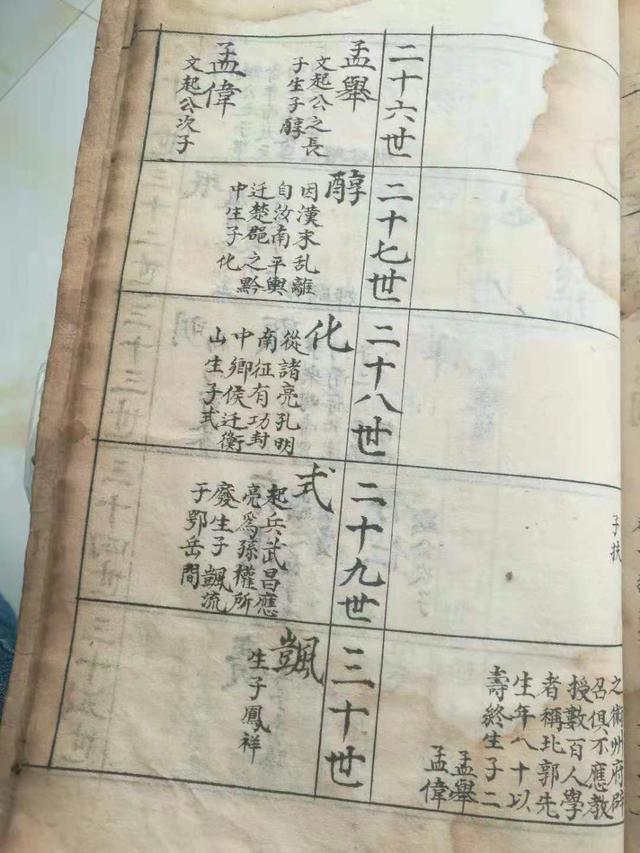 子扶
之衛州府辟
召俱不應教
授數百人學
者稱北郭先
生年八十以
壽終生子二
孟舉
孟偉
二十六世
孟舉
文起公之長
子生子醇
孟偉
文起公次子
二十七世
醇
因漢末乱離
自汝南平輿
迁楚郡之黔
中生子化
二十八世
化
從諸亮孔明
南征有功封
中鄉侯迁衡
山生子式
二十九世
式
起兵武昌應
亮為孫權所
廢生子颽流
于鄂岳間
三十世
颽
生子鳳祥